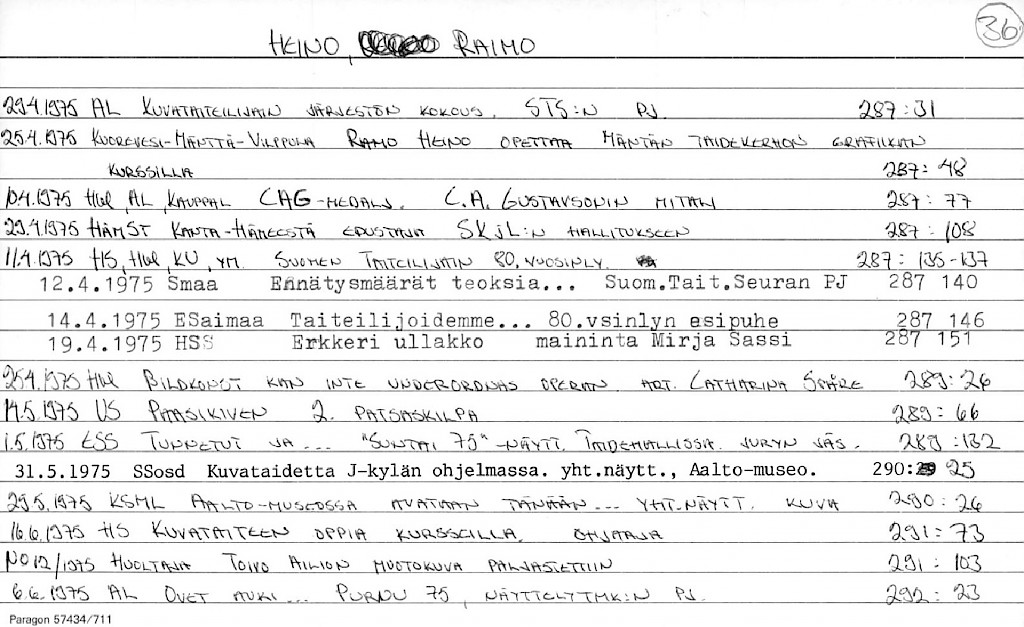 36
HEINO, RAIMO
29.4.1975 AL KUVATAITEILIJAIN JÄRJESTÖN KOKOUS. STS:N PJ. 287:31
25.4.1975 KUOREVESI-MÄNTTÄ-VILPPULA RAIMO HEINO OPETTAA MÄNTÄN TAIDEKERHON GRAFIIKAN
KURSSILLA 287:48
10.4.1975 Hbl, AL, KAUPPAL CAG-MEDALJ. C.A. GUSTAVSONIN MITALI 287:77
29.4.1975 HÄMST KANTA-HÄMEESTÄ EDUSTAJA SKjL:N HALLITUKSEEN 287:108
11.4.1975 HS, Hbl, KU, YM. SUOMEN TAITEILIJAIN 80.VUOSINLY. 287: 135-137
12.4.1975 Smaa Ennätysmäärät teoksia... Suom.Tait.Seuran PJ 287 140
14.4.1975 ESaimaa Taiteilijoidemme... 80.vsinlyn esipuhe 287 146
19.4.1975 HSS Erkkeri ullakko maininta Mirja Sassi 287 151
25.4.1975 Hbl BILDKONST KAN INTE UNDERORDNAS OPERAN. ART. CATHARINA SPÅRE 289:26
14.5.1975 US PAASIKIVEN 2. PATSASKILPA 289:66
1.5.1975 ESS TUNNETUT JA ... "SUNTAI 75"-NÄYTT. TAIDEHALLISSA. JURYN JÄS. 289:132
31.5.1975 SSosd Kuvataidetta J-kylän ohjelmassa. yht.näytt., Aalto-museo. 290: 25
29.5.1975 KSML AALTO-MUSEOSSA AVATAAN TÄNÄÄN... YHT.NÄYTT. KUVA 290:26
16.6.1975 HS KUVATAITEEN OPPIA KURSSEILLA. OHJAAJA 291:73
NO 12/1975 HUOLTAJA TOIVO AILION MUOTOKUVA PALJASTETTIIN 291:103
6.6.1975 AL OVET AUKI... PURNU 75, NÄYTTELYTMK:N PJ. 292:23
Paragon 57434/711